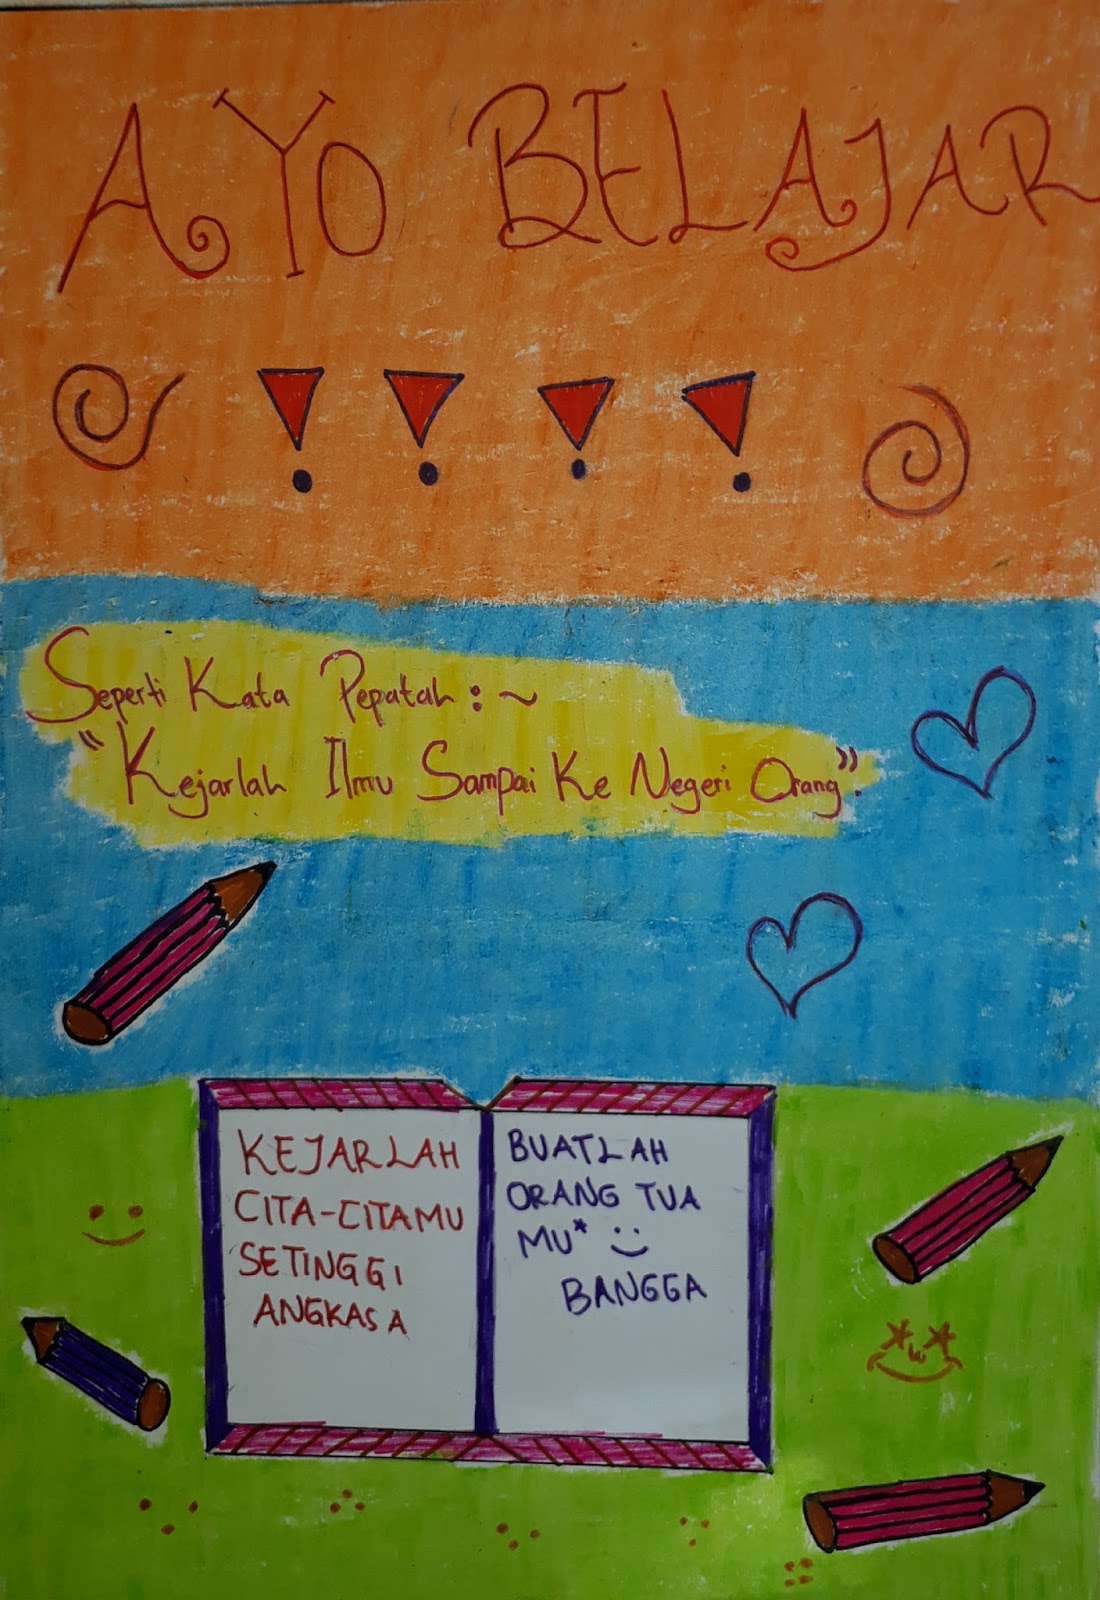 AYO BELAJAR
! ! ! !
Seperti Kata Pepatah : ~
"Kejarlah Ilmu Sampai Ke Negeri Orang".
KEJARLAH
CITA-CITAMU
SETINGGI
ANGKASA
BUATLAH
ORANG TUA
MU*
BANGGA